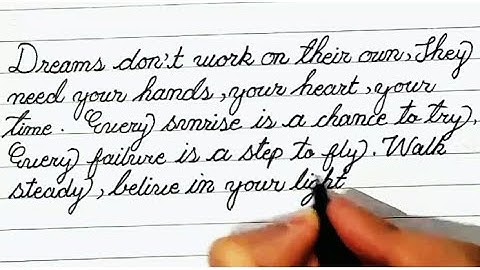 Dreams don't work on their own, They
need your hands, your heart, your
time. Every sunrise is a chance to try,
Every failure is a step to fly. Walk
steady, belive in your light